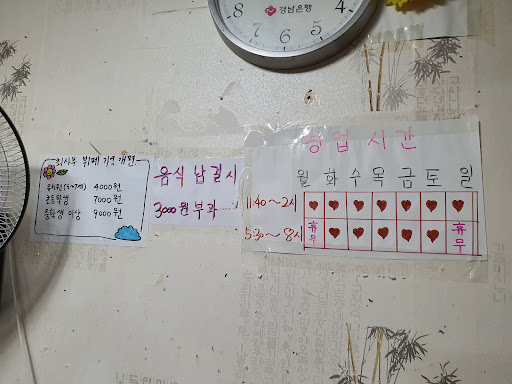 8
7
6
5
4
경남은행
최시부 뷔페 가격 개편
유치원(5~7세) 4000원
초등학생 7000원
중학생 이상 9000원
음식 남길시
3000원 부과
영업 시간
월 화 수 목 금 토 일
11:40~2시
5:30~8시 휴무 휴무